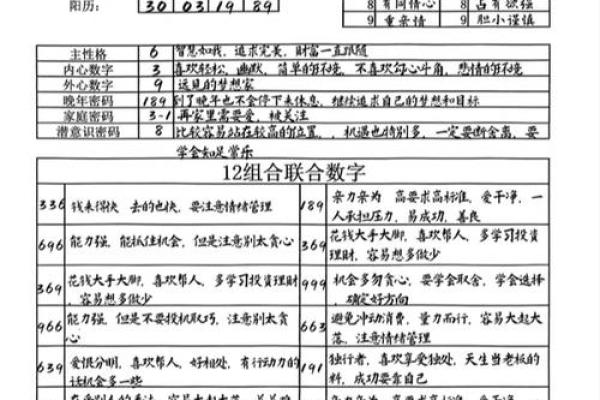 阳历: 30 03 19 89
8 有同情心 8 占有欲强
9 重亲情 9 胆小谨慎
主性格 6 智慧如我，追求完美，财富一直跟随
内心数字 3 喜欢轻松，幽默，简单的环境，不喜欢勾心斗角，悲情的环境
外心数字 9 远见的梦想家
晚年密码 189 到了晚年也不会停下来休息，继续追求自己的梦想和目标
家庭密码 3-1 再家里需要爱，被关注
潜意识密码 8 比较容易站在较高的位置，，机遇也特别多，一定要断舍离，要
学会知足常乐
12组合联合数字
336 钱来得快 去的也快，要注意情绪管理
189 亲力亲为 高要求高标准，爱干净，一
人承担压力，易成功，善良
696 能力强，能抓住机会，但是注意别太贪心
369 花钱大手大脚，喜欢帮人，多学习投资
理财，容易想多做少
369 花钱大手大脚，喜欢帮人，多学习投资理财
，容易想多做少
999 机会多勿贪心，要学会取舍，学会选择
，确定好方向
966 能力强，但是不要投机取巧，注意别太贪
心
663 避免冲动消费，量力而行，容易大起大
落，注意情绪管理
639 爱恨分明，喜欢帮人，好相处，有行动力的
话机会多一些
191 独行者，喜欢享受独处，天生当老板的
料，成功要靠自己